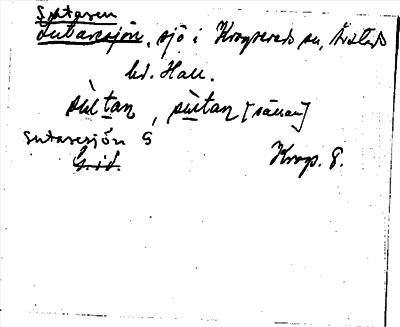 Sutaren
Sutaresjön, sjö i Krogsereds sn, Årstads
hd. Hall.
sùtan, sùtan [sällan]
Sutaresjön G
G. id. Krogs. 8.